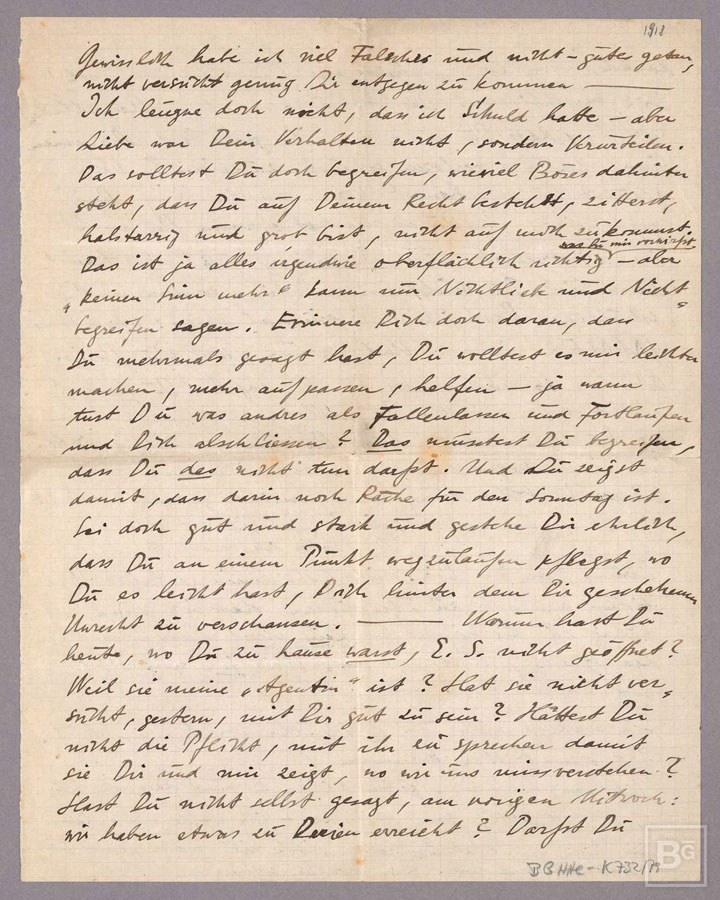 1918
Gewisslich habe ich viel Falsches und nicht-gutes getan,
nicht versucht genug Dir entgegen zu kommen ———
Ich leugne doch nicht, dass ich Schuld hatte – aber
Liebe war Dein Verhalten nicht, sondern Verurteilen.
Das solltest Du doch begreifen, wieviel Böses dahinter
steht, dass Du auf Deinem Recht bestehst, zitterst,
halstarrig und grob bist, nicht auf mich zukommst.
was Du mir vorwirfst
Das ist ja alles irgendwie oberflächlich richtig – aber
"keinen Sinn mehr" kann nur Nichtlieb und Nicht-
begreifen sagen. Erinnere Dich doch daran, dass
Du mehrmals gesagt hast, Du wolltest es mir leichter
machen, mehr aufpassen, helfen – ja wann
tust Du was andres als Fallenlassen und Fortlaufen
und Dich abschliessen? Das müsstest Du begreifen,
dass Du das nicht tun darfst. Und Du zeigst
damit, dass darin noch Rache für den Sonntag ist.
Sei doch gut und stark und gestehe Dir ehrlich,
dass Du an einem Punkt wegzulaufen pflegst, wo
Du es leicht hast, Dich hinter dem Dir geschehenen
Unrecht zu verschanzen. ——— Warum hast Du
heute, wo Du zu hause warst, E. S. nicht geöffnet?
Weil sie meine „Agentin" ist? Hat sie nicht ver-
sucht, gestern, mit Dir gut zu sein? Hättest Du
nicht die Pflicht, mit ihr zu sprechen damit
sie Dir und mir zeigt, wo wir uns missverstehen?
Hast Du nicht selbst gesagt, am vorigen Mittwoch:
wir haben etwas zu Dreien erreicht? Darfst Du
BG HHC-K 732/79
BG